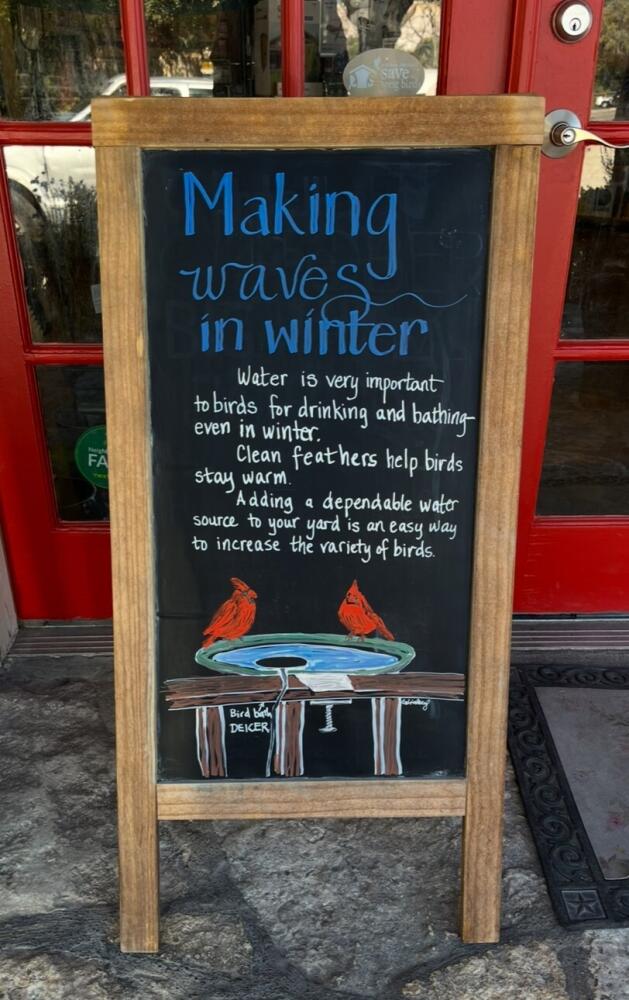 save
song bird
Making
waves
in winter
Water is very important
to birds for drinking and bathing
even in winter.
Clean feathers help birds
stay warm.
Adding a dependable water
source to your yard is an easy way
to increase the variety of birds.
Bird bath
DEICER
FA